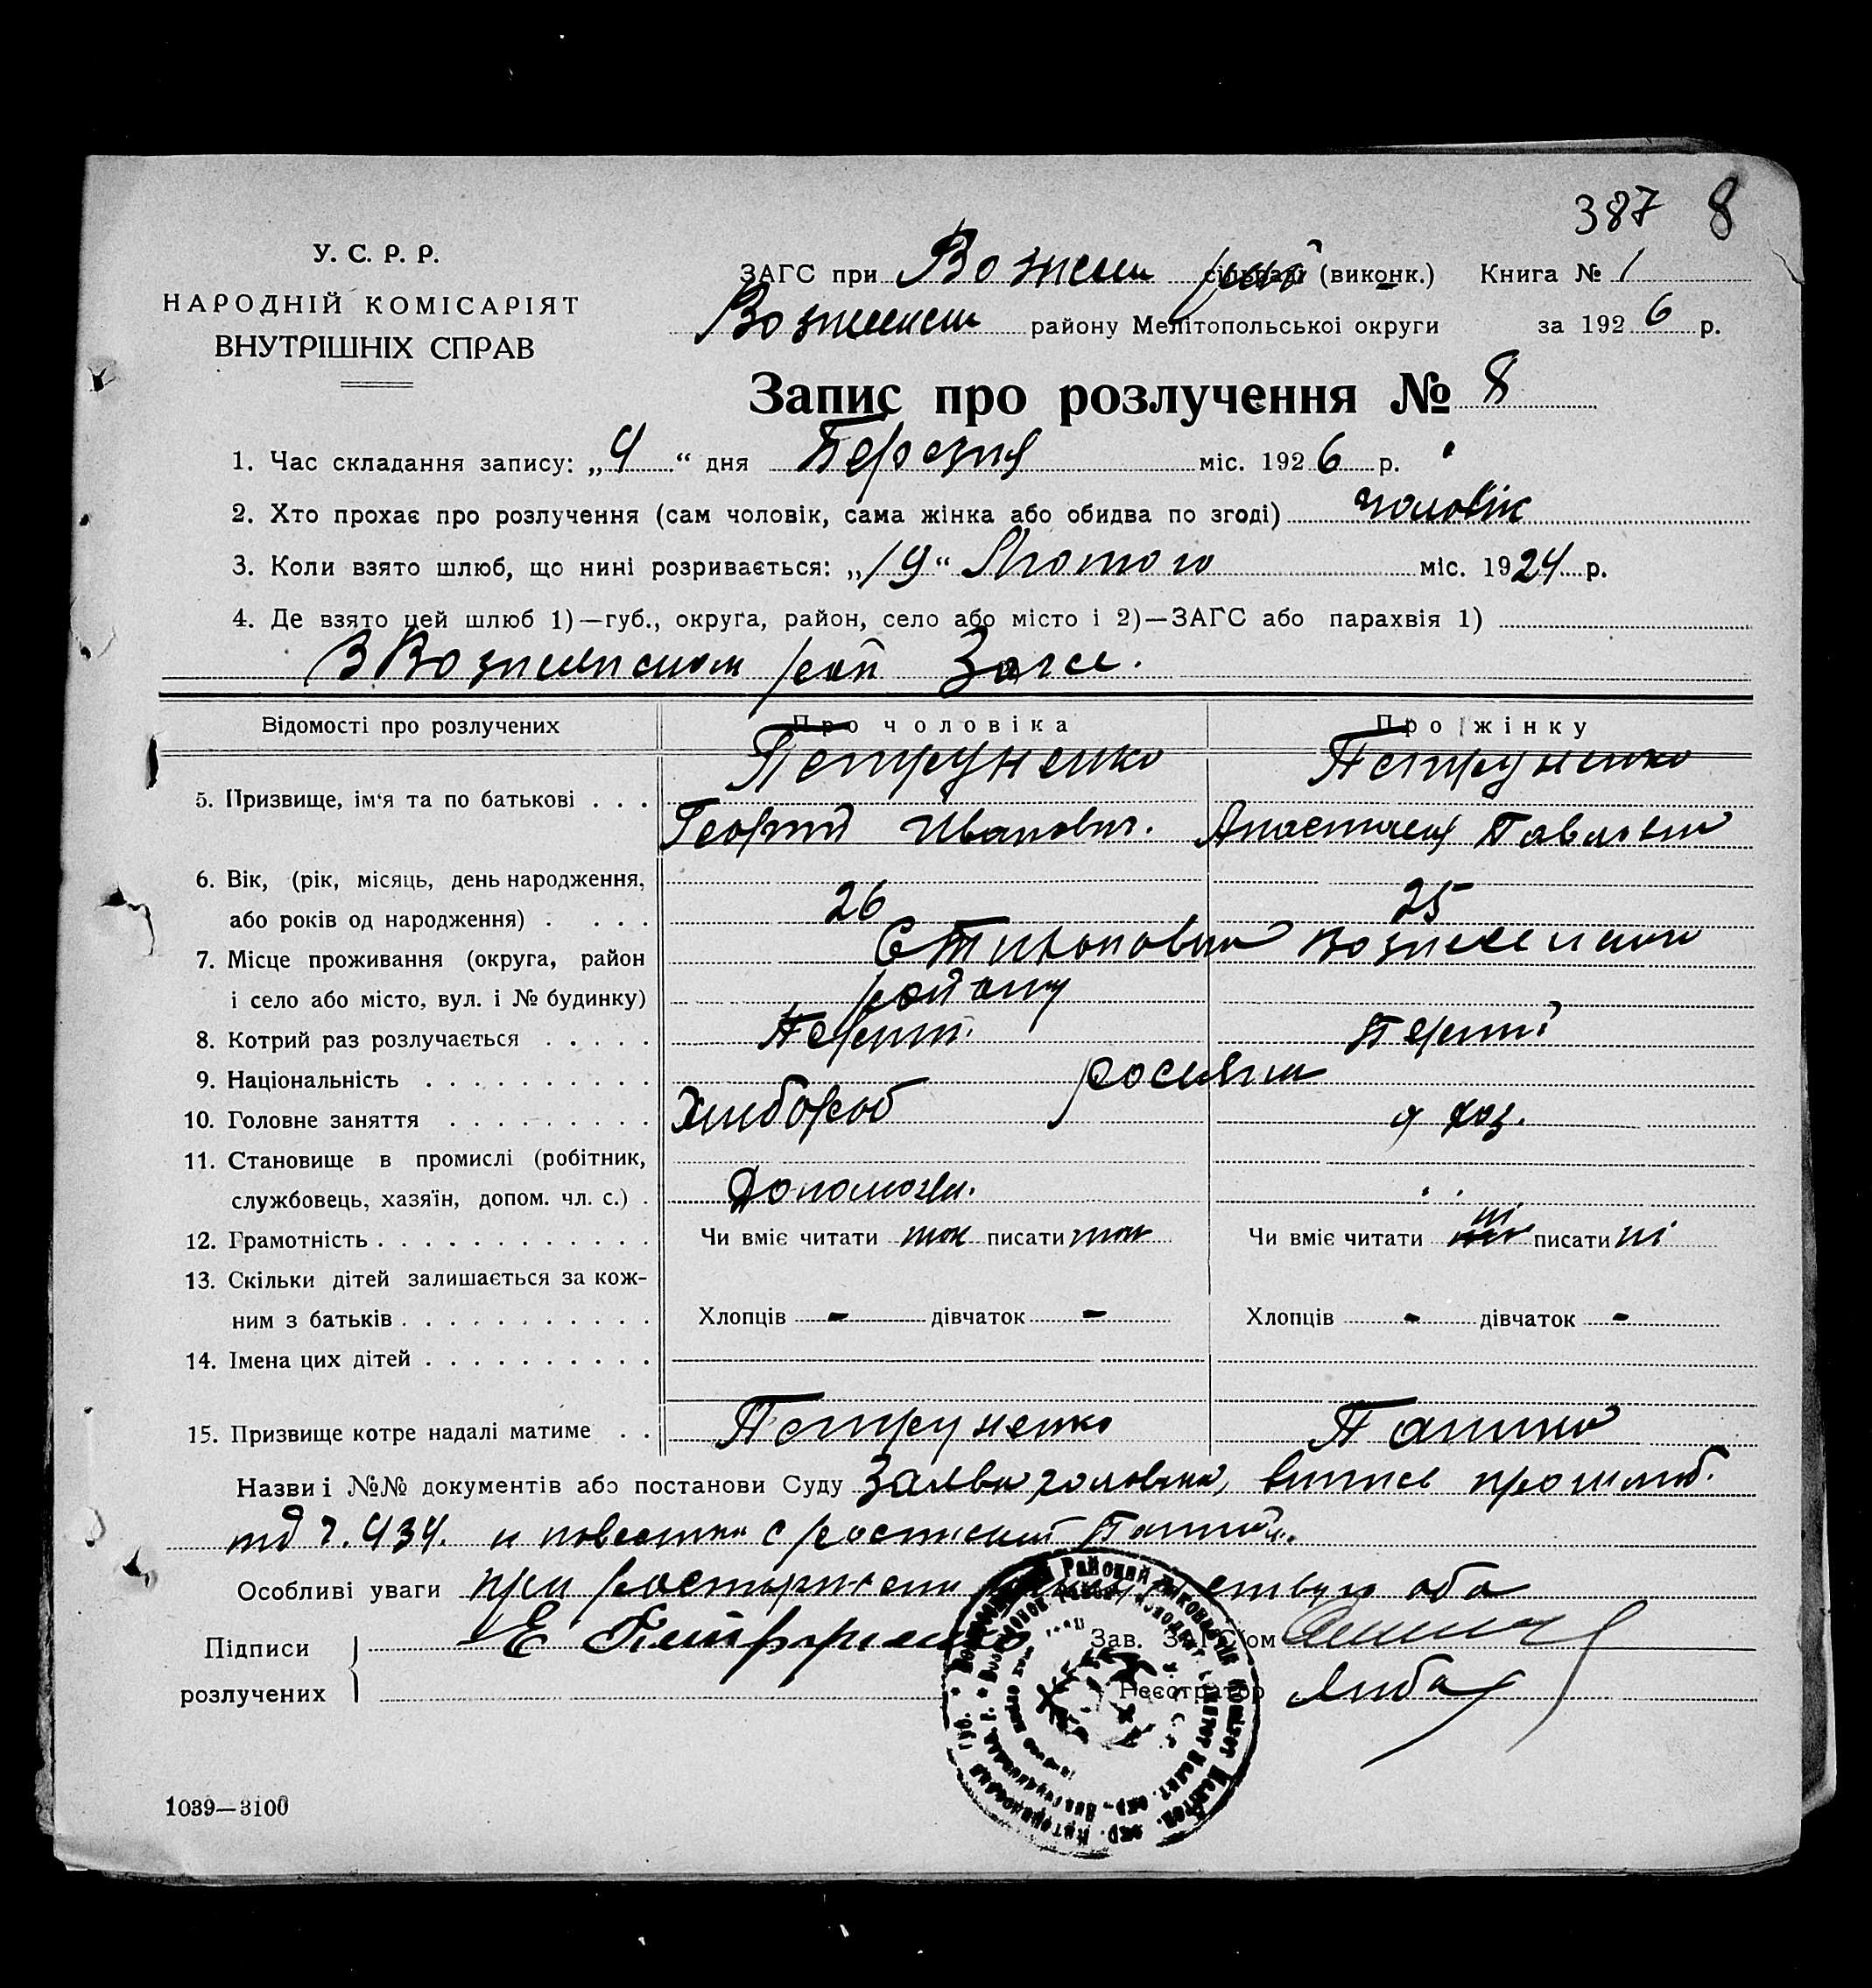 387 8
У. С. Р. Р.
НАРОДНІЙ КОМІСАРІЯТ
ВНУТРІШНІХ СПРАВ
ЗАГС при Вознесен рай (виконк.) Книга № 1
Вознесенськ району Мелітопольської округи за 1926 р.
Запис про розлучення № 8
1. Час складання запису: „4“ дня Березня міс. 1926 р.
2. Хто прохає про розлучення (сам чоловік, сама жінка або обидва по згоді) чоловік
3. Коли взято шлюб, що нині розривається: „19“ Лютого міс. 1924 р.
4. Де взято цей шлюб 1)—губ., округа, район, село або місто і 2)—ЗАГС або парахвія 1)
В Вознесенском рай Загсе.
Відомості про розлучених Про чоловіка Про жінку
5. Призвище, ім‘я та по батькові . . . Петруненко Георгий Иванович. Петруненко Анастасия Павловна
6. Вік, (рік, місяць, день народження,
або років од народження) . . . . 26 25
7. Місце проживання (округа, район
і село або місто, вул. і № будинку) Вознесенского району
8. Котрий раз розлучається . . . . . Перший Перший
9. Національність . . . . . . . . . . росияни
10. Головне заняття . . . . . . . . . Хлібороб д хоз.
11. Становище в промислі (робітник,
службовець, хазяїн, допом. чл. с.) . Допомогає.
12. Грамотність . . . . . . . . . . . . Чи вміє читати так писати так Чи вміє читати ні писати ні
13. Скільки дітей залишається за кож-
ним з батьків . . . . . . . . . . . Хлопців - дівчаток - Хлопців - дівчаток -
14. Імена цих дітей . . . . . . . . . .
15. Призвище котре надалі матиме . . Петруненко
Назви і №№ документів або постанови Суду Заява чоловіка, випись про шлюб.
під ч. 434. и повестка с роспиской
Особливі уваги при расторжении оба
Підписи
розлучених
Е Петруненко
Зав. ЗАГС‘ом
Реєстратор
1039—3100